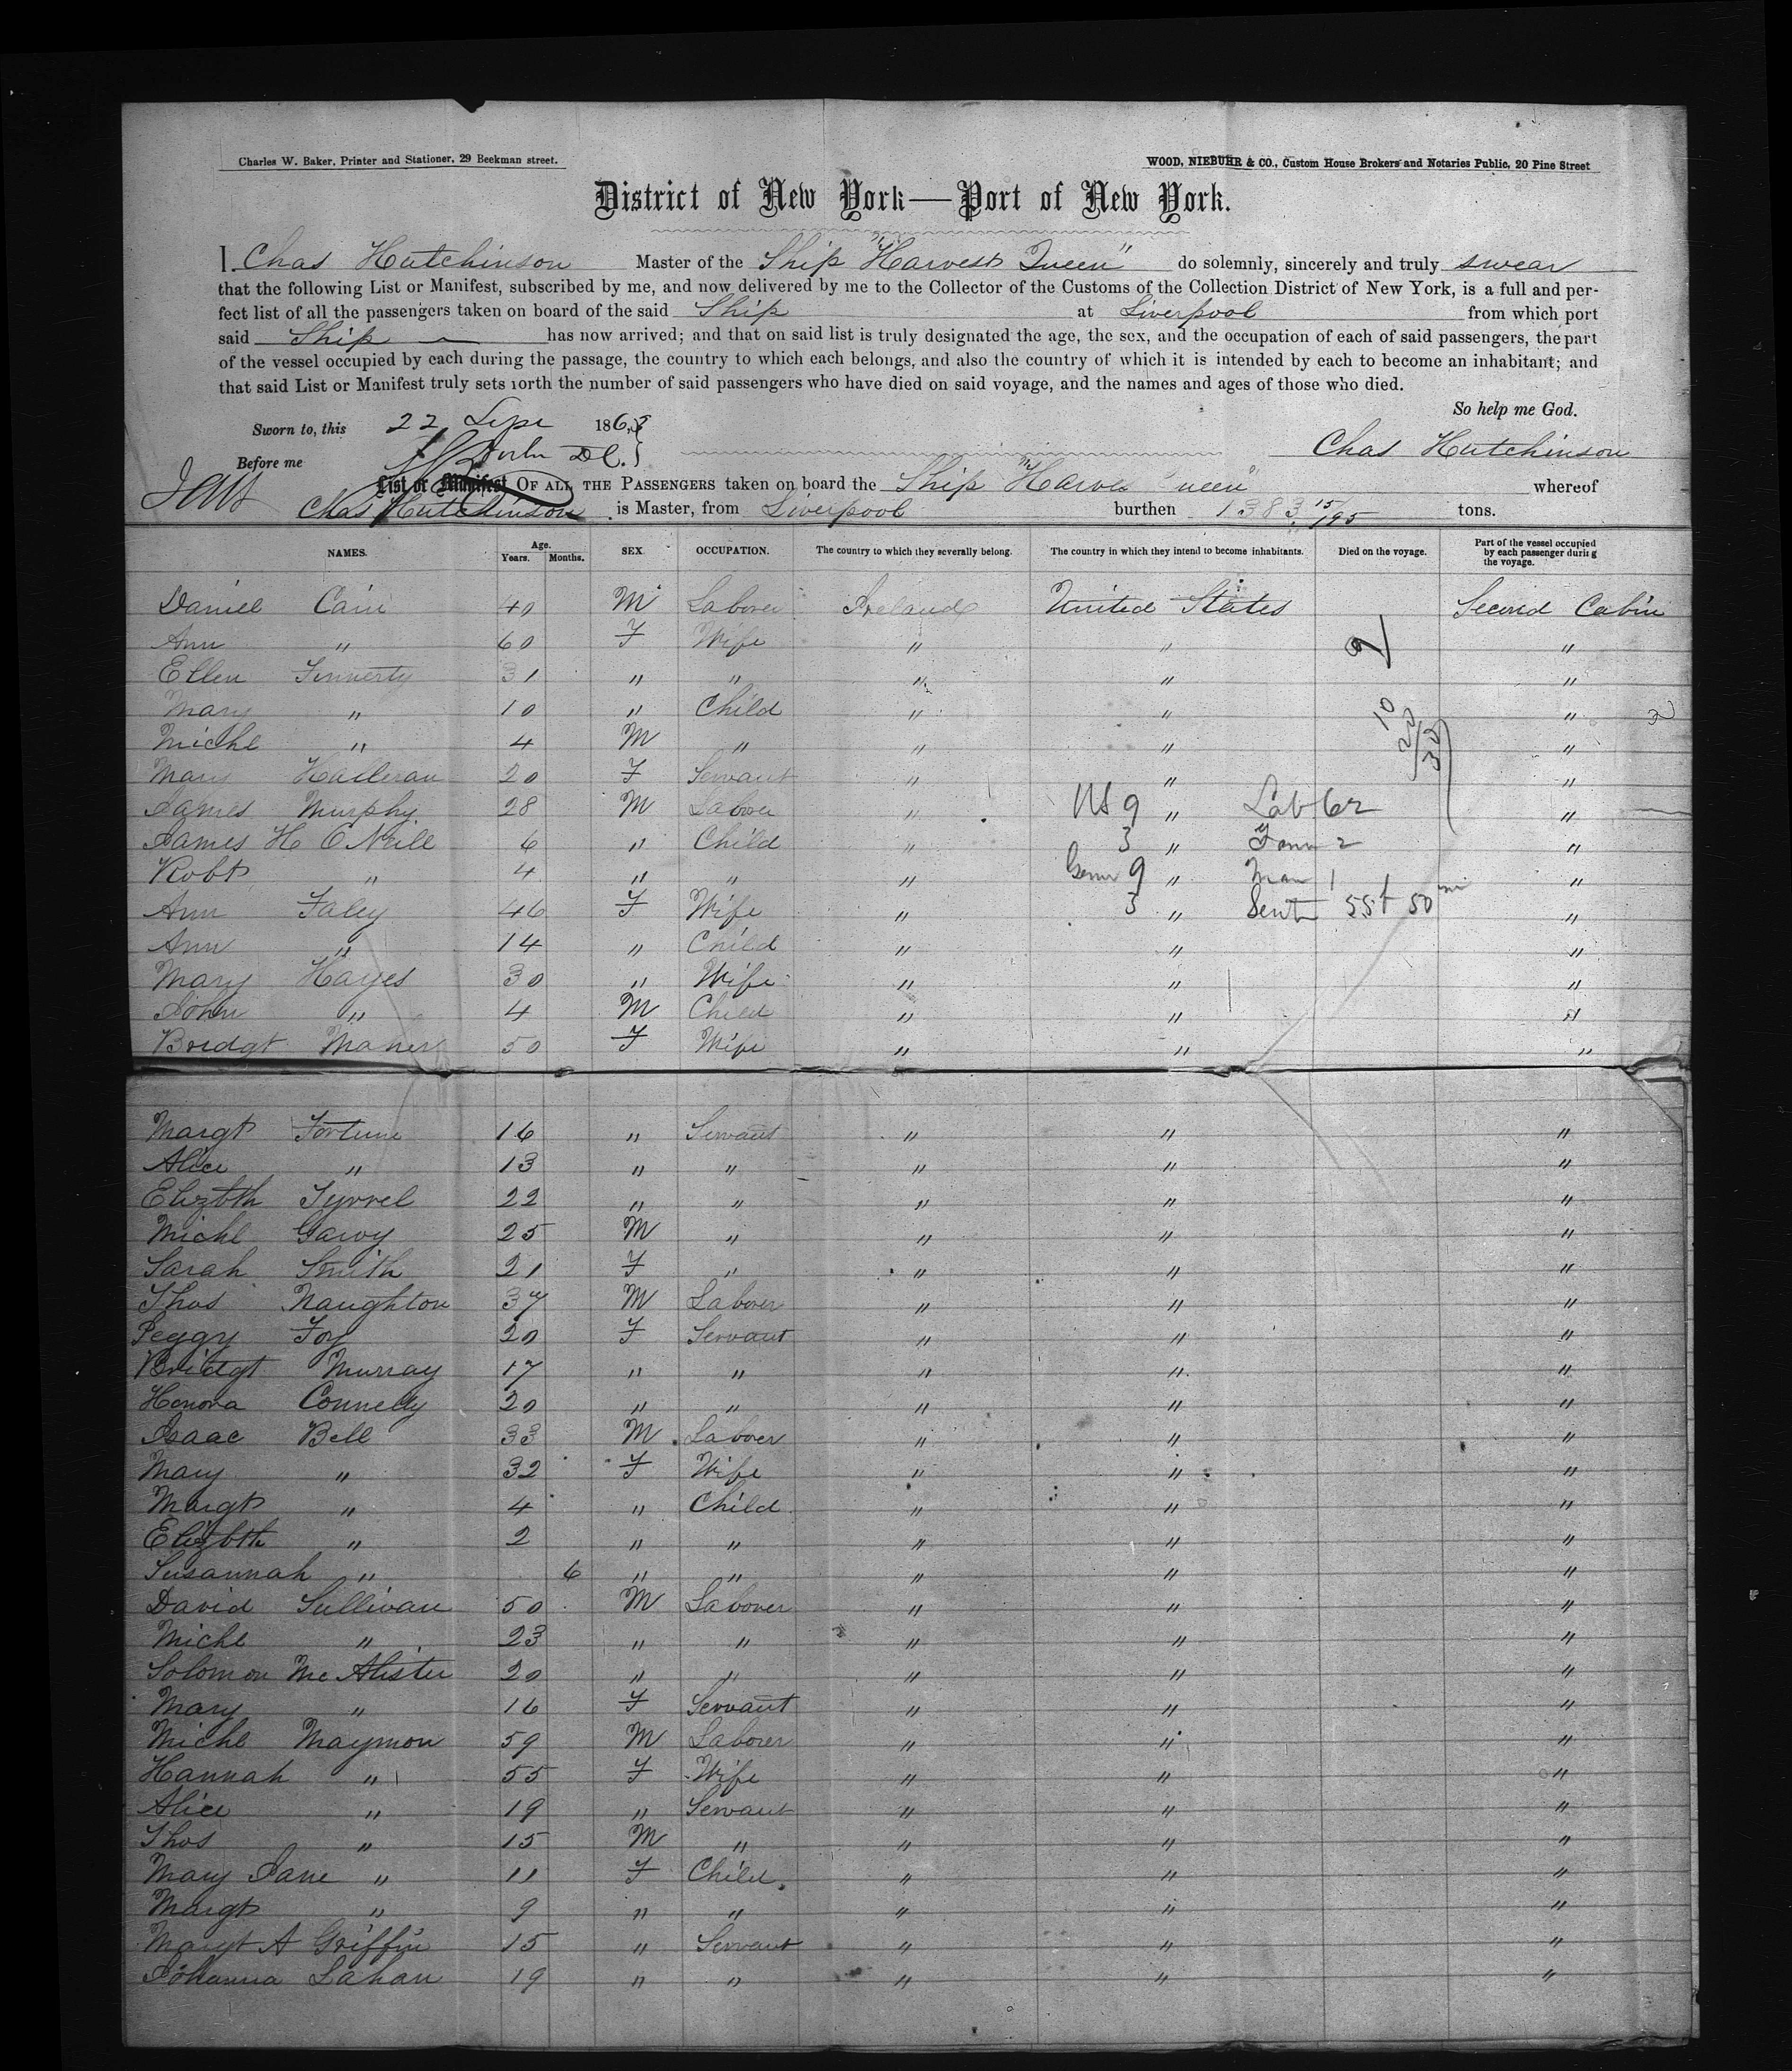 Charles W. Baker, Printer and Stationer, 29 Beekman street. WOOD, NIEBUHR & CO., Custom House Brokers and Notaries Public, 20 Pine Street
District of New York—Port of New York.
I, Chas Hutchinson Master of the Ship "Harvest Queen" do solemnly, sincerely and truly swear
that the following List or Manifest, subscribed by me, and now delivered by me to the Collector of the Customs of the Collection District of New York, is a full and per-
fect list of all the passengers taken on board of the said Ship at Liverpool from which port
said Ship has now arrived; and that on said list is truly designated the age, the sex, and the occupation of each of said passengers, the part
of the vessel occupied by each during the passage, the country to which each belongs, and also the country of which it is intended by each to become an inhabitant; and
that said List or Manifest truly sets forth the number of said passengers who have died on said voyage, and the names and ages of those who died.
So help me God.
Sworn to, this 22 Sept 1863
Before me Chas Hutchinson
List or Manifest OF ALL THE PASSENGERS taken on board the Ship "Harves ueen" whereof
Chas Hutchinson is Master, from Liverpool burthen 1383 15/95 tons.
NAMES. Age. Years. Months. SEX. OCCUPATION. The country to which they severally belong. The country in which they intend to become inhabitants. Died on the voyage. Part of the vessel occupied by each passenger during the voyage.
Daniel Cain 40 M Laborer Ireland United States Second Cabin
Ann " 60 F Wife " " "
Ellen Finnerty 31 " " " " "
Mary " 10 " Child " " "
Michl " 4 M " " " "
Mary Halleran 20 F Servant " " "
James Murphy 28 M Labore " US 9 " Lab 62 "
James H O'Neill 6 " Child " 3 " Farm 2 "
Robt " 4 " " " 9 " Man 1 "
Ann Faley 46 F Wife " 3 " 55 + 50 "
Ann " 14 " Child " " "
Mary Hayes 30 " Wife " " "
John " 4 M Child " " "
Bridgt Maher 50 F Wife " " "
Margt Fortune 16 " Servant " " "
Alice " 13 " " " " "
Elizbth Tyrrel 22 " " " " "
Michl Garvy 25 M " " " "
Sarah Smith 21 F " " " "
Thos Naughton 37 M Laborer " " "
Peggy Foy 20 F Servant " " "
Bridgt Murray 17 " " " " "
Honora Connelly 20 " " " " "
Isaac Bell 33 M Laborer " " "
Mary " 32 F Wife " " "
Margt " 4 " Child " " "
Elizbth " 2 " " " " "
Susannah " 6 " " " " "
David Sullivan 50 M Laborer " " "
Michl " 23 " " " " "
Solomon McAlister 20 " " " " "
Mary " 16 F Servant " " "
Michl Maymon 59 M Laborer " " "
Hannah " 55 F Wife " " "
Alice " 19 " Servant " " "
Thos " 15 M " " " "
Mary Jane " 11 F Child " " "
Margt " 9 " " " " "
Margt A Griffin 15 " Servant " " "
Johanna Lahan 19 " " " " "